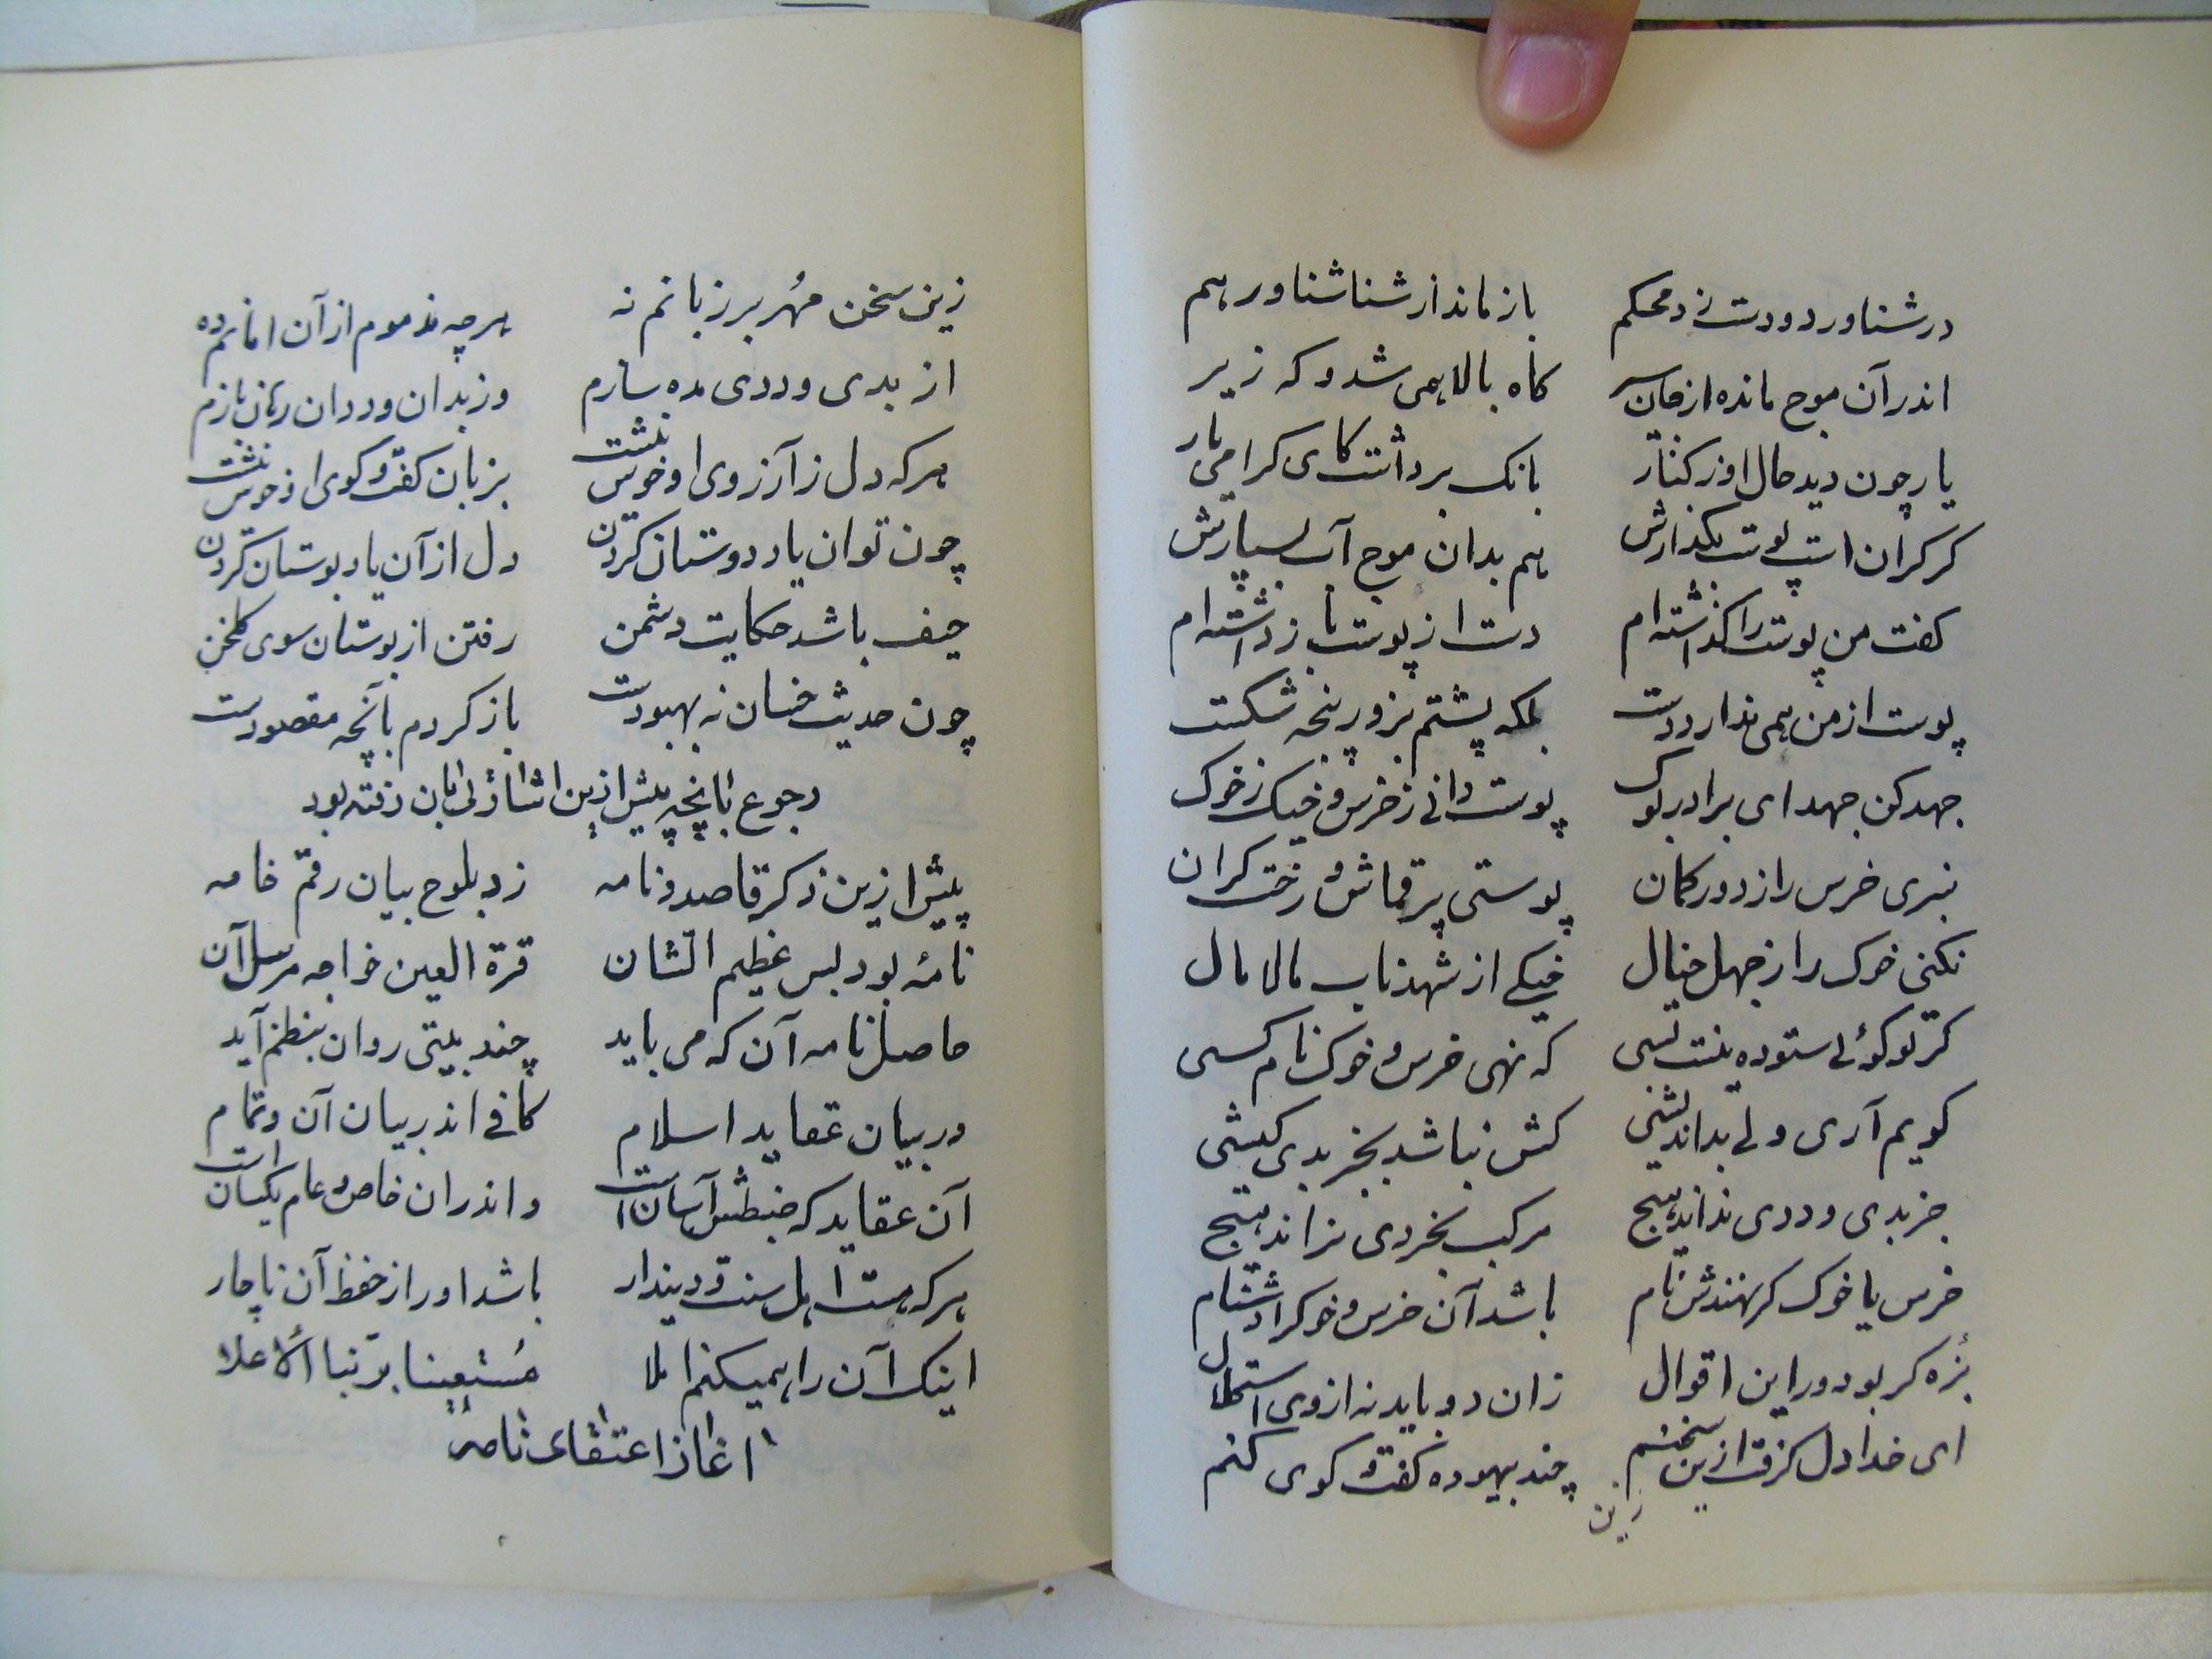 در شناور دو دست زد محکم باز ماند از شنا شناور هم
اندر آن موج مانده از جان سیر گاه بالا همی شد و گه زیر
یار چون دید حال او ز کنار بانک برداشت کای کرامی یار
کر کران است پوست بگذارش هم بدان موج آب بسپارش
کفت من پوست را گذاشته ام دست از پوست باز داشته ام
پوست از من همی ندارد دست بلکه پشتم بزور پنجه شکست
جهد کن جهد ای برادر بوک پوست دانی ز خرس و خیک ز خوک
نبری خرس را ز دور کمان پوستی پر قماش و رخت کران
نکنی خوک را ز جهل خیال خیکی از شهد ناب مالامال
کر تو کوئی ستوده نیست بسی که نهی خرس و خوک نام کسی
کویم آری ولی بداندیشی کش نباشد بجز بدی کیشی
جز بدی و ددی نداند هیچ مرکب بخردی نراند هیچ
خرس یا خوک کر نهندش نام باشد آن خرس و خوک را دشنام
بزه کر بود در این اقوال زان دو باید نه از وی استحلال
ای خدا دل کرفت ازین سخنم چند بیهوده کفت و کوی کنم
زین
زین سخن مهر بر زبانم نه هر چه مذموم از آن امانم ده
از بدی و ددی مده سازم وز بدان و ددان رهان بازم
هر که دل ز آرزوی او خوش نیست بزبان کفت و کوی او خوش نیست
چون توان یاد دوستان کردن دل از آن یاد بوستان کردن
حیف باشد حکایت دشمن رفتن از بوستان سوی کلخن
چون حدیث خسان نه بهبودست باز کردم بآنچه مقصودست
رجوع بآنچه پیش ازین اشارتی بآن رفته بود
پیش ازین ذکر قاصد و نامه زد بلوح بیان رقم خامه
نامهٔ بود بس عظیم الشان قرة العین خواجه مرسل آن
حاصل نامه آن که می باید چند بیتی روان بنظم آید
در بیان عقاید اسلام کافی اندر بیان آن و تمام
آن عقاید که ضبطش آسان است و اندران خاص و عام یکسان است
هر که هست اهل سنت و دیندار باشد او را ز حفظ آن ناچار
اینک آن را همیکنم املا مستعینا بربنا الاعلا
آغاز اعتقاد نامه